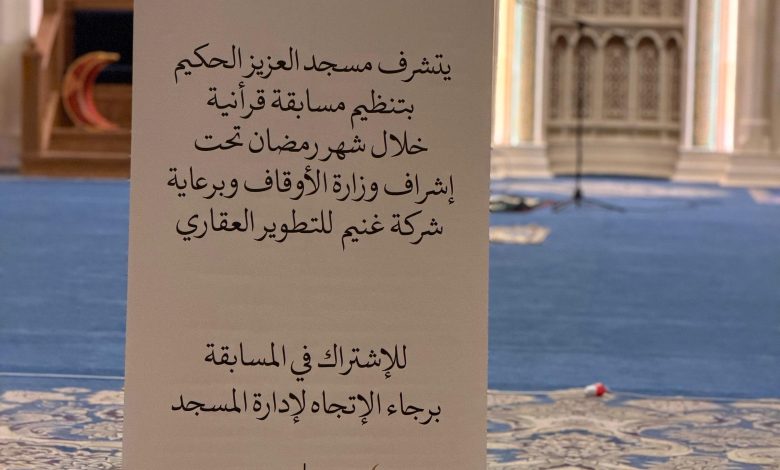 يتشرف مسجد العزيز الحكيم
بتنظيم مسابقة قرأنية
خلال شهر رمضان تحت
إشراف وزارة الأوقاف وبرعاية
شركة غنيم للتطوير العقاري
للإشتراك في المسابقة
برجاء الإتجاه لإدارة المسجد